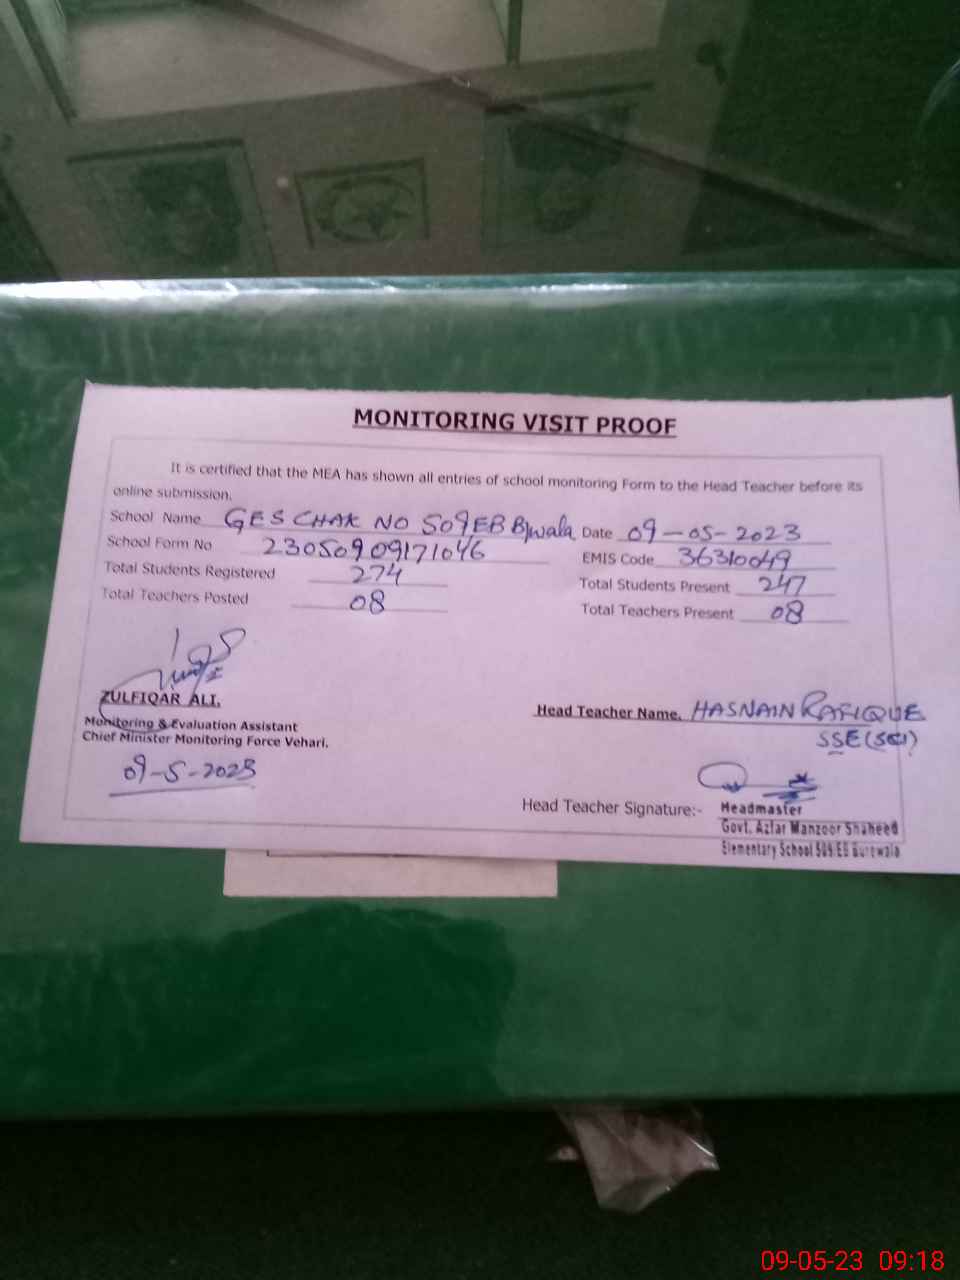 MONITORING VISIT PROOF
It is certified that the MEA has shown all entries of school monitoring Form to the Head Teacher before its
online submission.
School Name GES CHAK NO 509EB B/wala Date 09-05-2023
School Form No 23050909171046 EMIS Code 36310049
Total Students Registered 274 Total Students Present 247
Total Teachers Posted 08 Total Teachers Present 08
ZULFIQAR ALI.
Monitoring & Evaluation Assistant
Chief Minister Monitoring Force Vehari.
09-5-2023
Head Teacher Name. HASNAIN RAFIQUE
SSE(SCI)
Head Teacher Signature:-
Headmaster
Govt. Azfar Manzoor Shaheed
Elementary School 509/EB Burewala
09-05-23 09:18